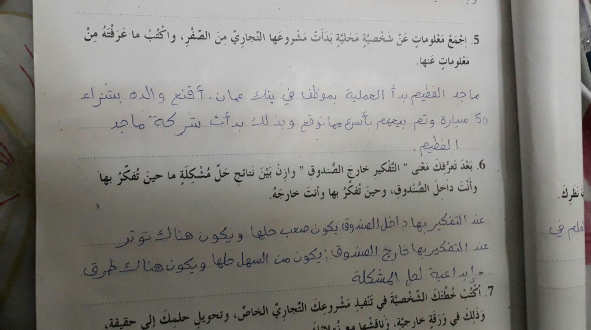 5. اِجْمَعْ مَعْلوماتٍ عَنْ شَخْصِيَّةٍ مَحَلِّيَّةٍ بَدَأَتْ مَشْروعَها التِّجارِيَّ مِنَ الصِّفْرِ، واكْتُبْ ما عَرَفْتَهُ مِنْ
مَعْلوماتٍ عَنها.
ماجد الفطيم بدأ العملية بموظف في بنك عمان. أقنع والده بشراء
50 سيارة وتم بيعهم بأسرع مما توقع وبذلك بدأت شركة ماجد
الفطيم.
6. بَعْدَ تَعَرُّفِكَ مَعْنى " التَّفْكير خارِجَ الصُّندوقِ " وازِنْ بَيْنَ نَتائِجِ حَلِّ مُشْكِلَةٍ ما حينَ تُفَكِّرُ بها
وأنْتَ داخِلَ الصُّنْدوقِ، وحينَ تُفَكِّرُ بها وأنتَ خارِجَهُ.
عند التفكير بها داخل الصندوق يكون صعب حلها ويكون هناك توتر
عند التفكير بها خارج الصندوق: يكون من السهل حلها ويكون هناك طرق
إبداعية لحل المشكلة
7. اُكْتُبْ خُطَّتَكَ الشَّخْصِيَّةَ في تَنْفيذِ مَشْروعِكَ التِّجارِيِّ الخاصِّ، وتَحْويلِ حلمِكَ إلى حقيقة،
وَذَلِكَ في وَرَقَةٍ خارِجِيَّةٍ، وَناقِشْها مع زُملائِكَ
نَظَرِكَ.